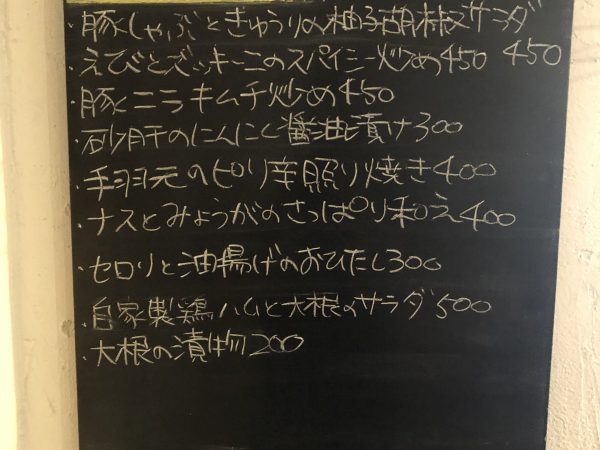 ・豚しゃぶときゅうりの柚子胡椒サラダ
・えびとズッキーニのスパイシー炒め450 450
・豚ニラキムチ炒め450
・砂肝のにんにく醤油漬け300
・手羽元のピリ辛照り焼き400
・ナスとみょうがのさっぱり和え400
・セロリと油揚げのおひたし300
・自家製鶏ハムと大根のサラダ500
・大根の漬物200